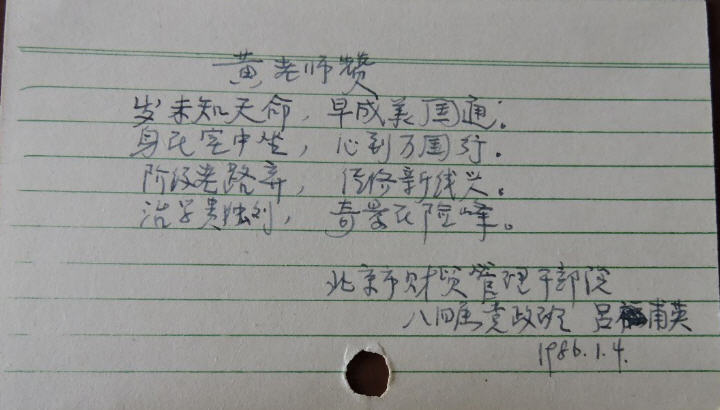 黄老师赞
岁未知天命，早成美国通；
身在室中坐，心到万国行。
阶级老路弃，经修新线兴。
治学贵独创，奇景在险峰。
北京市财贸管理干部院
八四届党政班 吕甫英
1986.1.4.